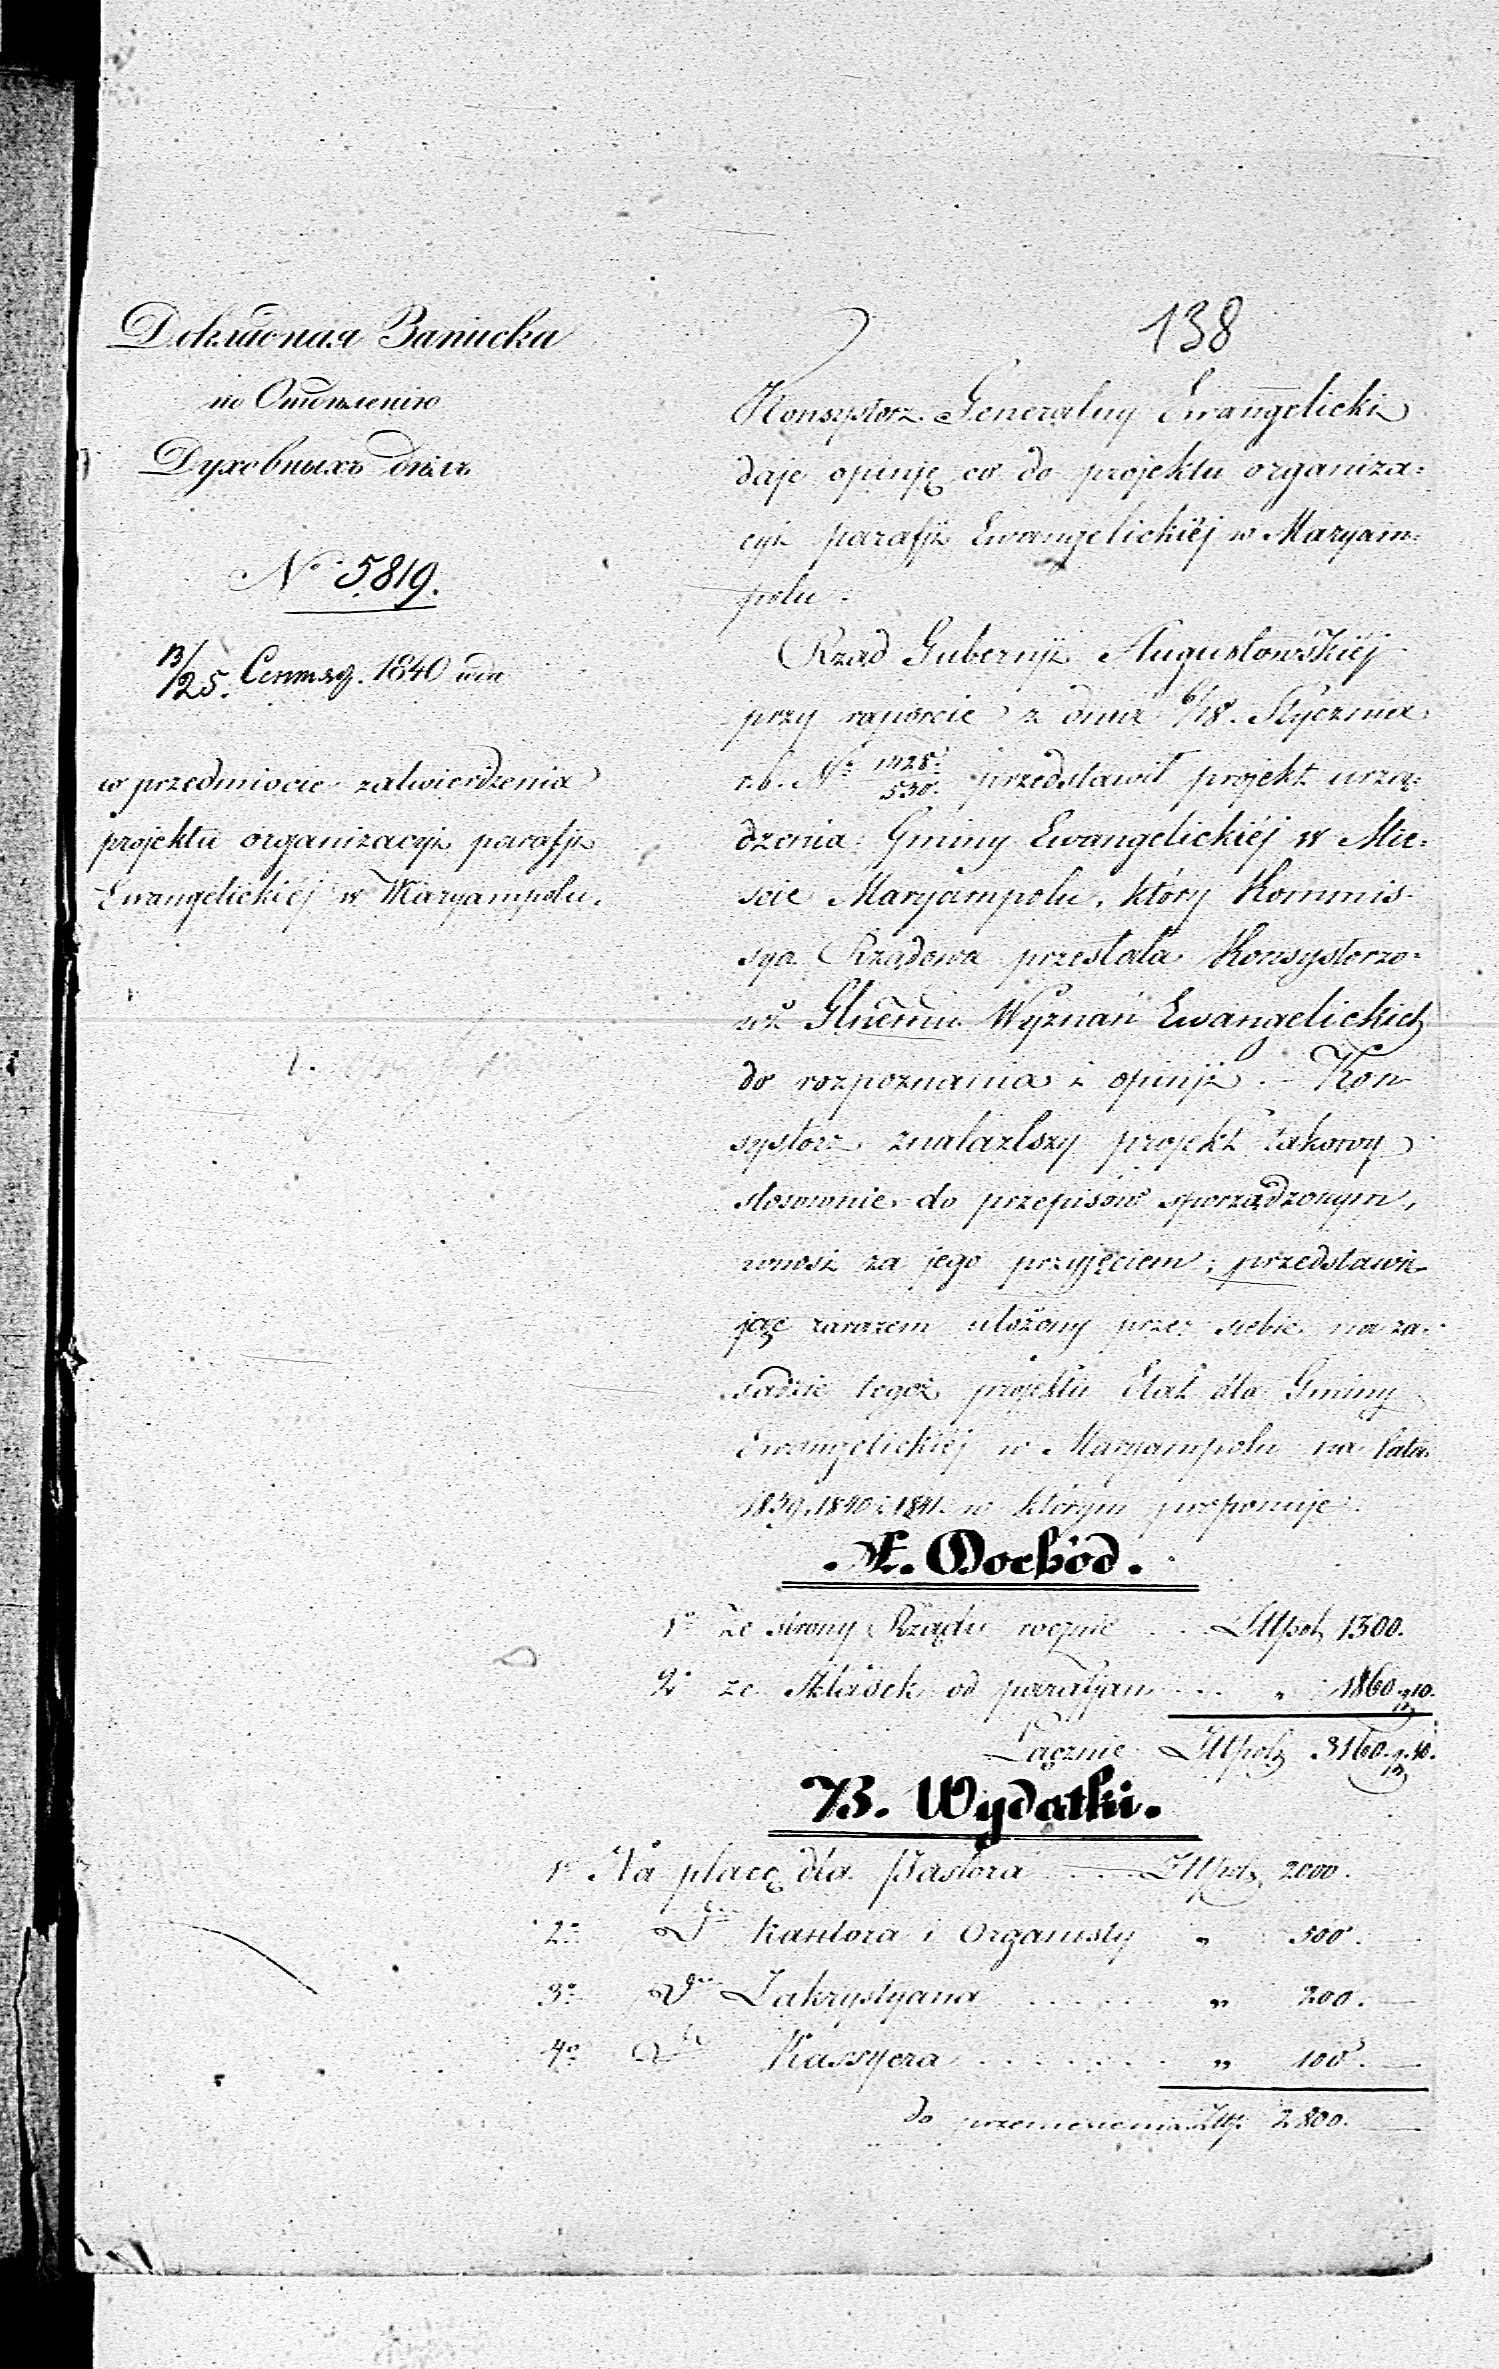 138
Докладная Записка
по Отдѣленію
Духовныхъ дѣлъ
№ 5819.
13/25. 1840
w przedmiocie zatwierdzenia
projektu organizacyi parafji
Ewangelickiéj w Maryampolu.
Konsystorz Generalny Ewangelicki
daje opinję co do projektu organiza=
cyi parafji Ewangelickiéj w Maryam=
polu.
Rząd Gubernji Augustowskiéj
przy raporcie z dnia 6/18. Stycznia
r.b. № przedstawił projekt urzą=
dzenia Gminy Ewangelickiéj w Mie=
scie Maryampolu, który Kommis=
sya Rządowa przesłała Konsystorzo=
wi Wyznań Ewangelickich
do rozpoznania i opinji. – Kon
systorz znalazłszy projekt takowy
stosownie do przepisów sporządzonym,
wnosi za jego przyjęciem; przedstawia
jąc zarazem ułożony przez siebie na za=
sadzie tegoż projektu Etat dla Gminy
Ewangelickiéj w Maryampolu na lata
1839, 1840 i 1841. w którym proponuje.
A. Dochód.
1º Ze strony Rządu rocznie . . . Złłpol 1300.
2º ze Składek od parafjan . . . „ 1860 g 10.
Łącznie Złłpol 3160. g 10.
B. Wydatki.
1º Na płacę dla Pastora . . . . Złłpol 2000. —
2º Dto Kantora i Organisty „ 500. —
3º Dto Zakrystyana . . . . . . „ 200. —
4º Dto Kassyera . . . . . . . . „ 100. —
do przeniesienia Złp 2800. —